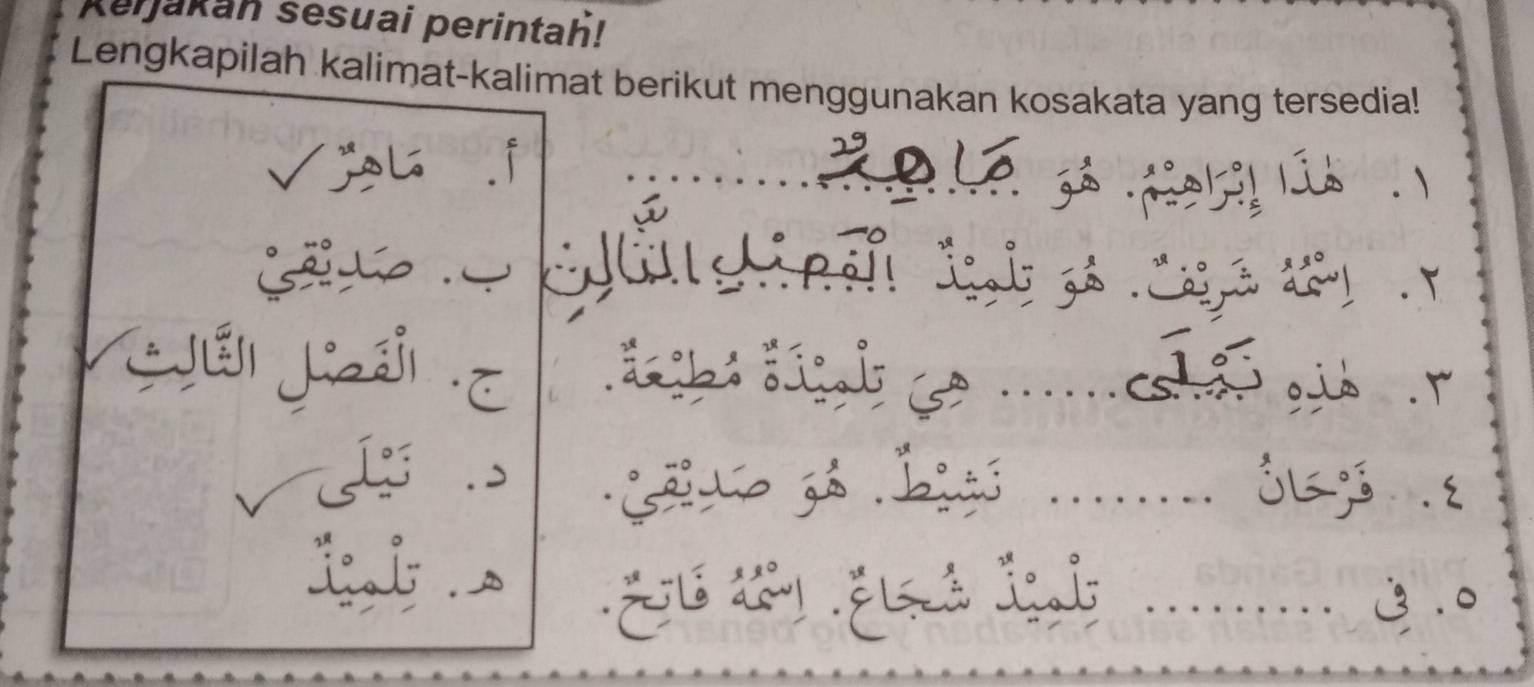 Kerjakan sesuai perintah!
Lengkapilah kalimat-kalimat berikut menggunakan kosakata yang tersedia!
١. هٰذَا إِبْرَاهِيْمُ. هُوَ مَاهِرٌ
٢. اِسْمُهُ شَرِيْفٌ. هُوَ تِلْمِيْذٌ الْفَصْلِ الثَّالِثِ
٣. هٰذِهِ نَيْلَى ...... هِيَ تِلْمِيْذَةٌ مُطِيْعَةٌ.
٤. فَرْحَانُ ........ نَشِيْطٌ. هُوَ صَدِيْقِيْ.
٥. فِي .......... تِلْمِيْذٌ شُجَاعٌ. اِسْمُهُ فَاتِحٌ.
أ. مَاهِرٌ ✓
ب. صَدِيْقِيْ
ج. الْفَصْلِ الثَّالِثِ ✓
د. نَيْلَى ✓
ه. تِلْمِيْذٌ